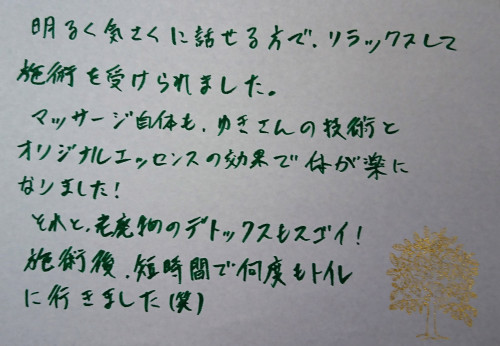 明るく気さくに話せる方で、リラックスして
施術を受けられました。
マッサージ自体も、ゆきさんの技術と
オリジナルエッセンスの効果で体が楽に
なりました!
それと、老廃物のデトックスもスゴイ!
施術後、短時間で何度もトイレ
に行きました(笑)